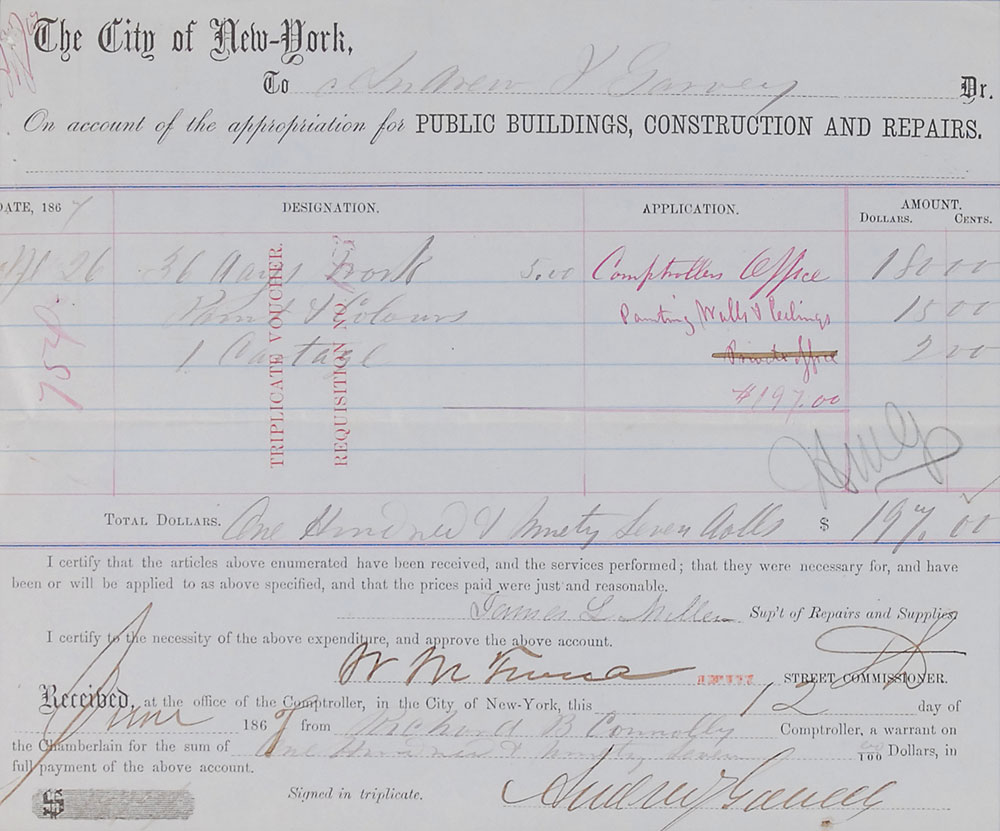 The City of New-York,
To Andrew J Garvey Dr.
On account of the appropriation for PUBLIC BUILDINGS, CONSTRUCTION AND REPAIRS.
DATE, 1867 DESIGNATION. APPLICATION. AMOUNT.
DOLLARS. CENTS.
Sept 26 36 days Work 5.00 Comptrollers Office 180 00
Paint & Colours Painting Walls & Ceilings 15 00
1 Cartage Private office 2 00
$197.00
TRIPLICATE VOUCHER.
REQUISITION NO.
TOTAL DOLLARS. One Hundred & Ninety Seven dolls $ 197. 00
I certify that the articles above enumerated have been received, and the services performed; that they were necessary for, and have
been or will be applied to as above specified, and that the prices paid were just and reasonable.
James L Miller Sup't of Repairs and Supplies,
I certify to the necessity of the above expenditure, and approve the above account.
STREET COMMISSIONER.
Received, at the office of the Comptroller, in the City of New-York, this 12 day of
June 1868 from Richard B Connolly Comptroller, a warrant on
the Chamberlain for the sum of One Hundred & ninety Seven 00/100 Dollars, in
full payment of the above account.
$ Signed in triplicate. Andrew J Garvey